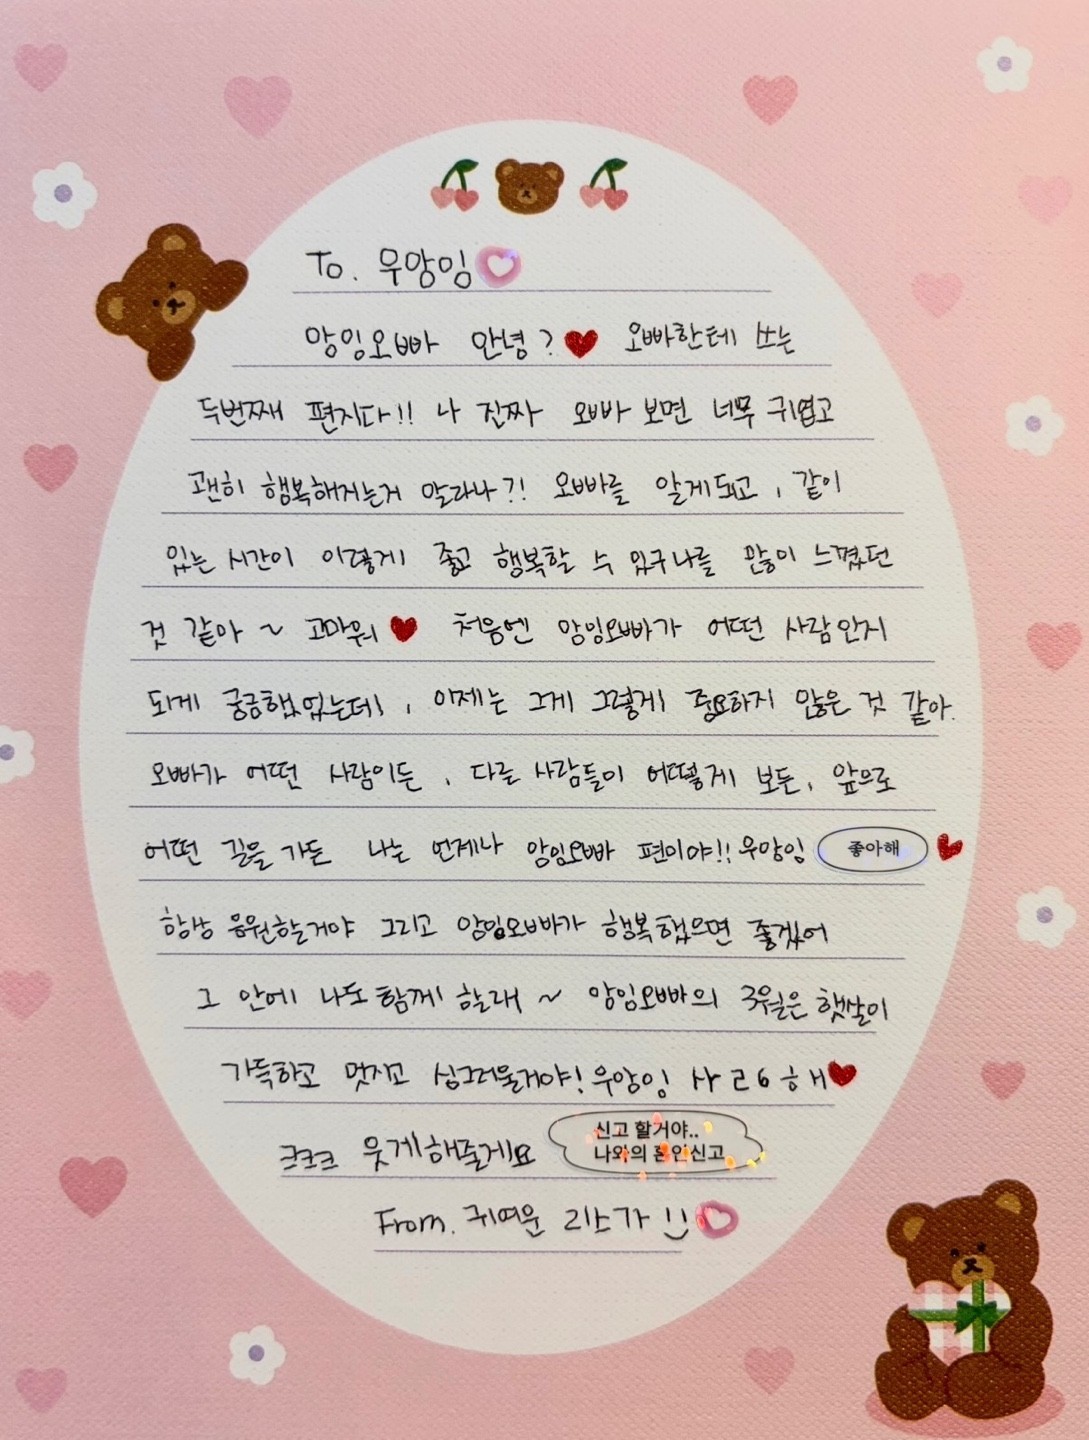 To. 우앙잉
앙잉오빠 안녕? 오빠한테 쓰는
두번째 편지다!! 나 진짜 오빠 보면 너무 귀엽고
괜히 행복해지는거 알라나?! 오빠를 알게되고, 같이
있는 시간이 이렇게 좋고 행복할 수 있구나를 많이 느꼈던
것 같아 ~ 고마워 처음엔 앙잉오빠가 어떤 사람인지
되게 궁금했었는데, 이제는 그게 그렇게 중요하지 않은 것 같아.
오빠가 어떤 사람이든, 다른 사람들이 어떻게 보든, 앞으로
어떤 길을 가든 나는 언제나 앙잉오빠 편이야!! 우앙잉 좋아해
항상 응원할거야 그리고 앙잉오빠가 행복했으면 좋겠어
그 안에 나도 함께 할래 ~ 앙잉오빠의 3월은 햇살이
가득하고 멋지고 싱그러울거야! 우앙잉 사 ㄹ6 ㅎH
ㅋㅋㅋ 웃게해줄게요 신고 할거야..
나와의 혼인신고
From. 귀여운 리소가 :)